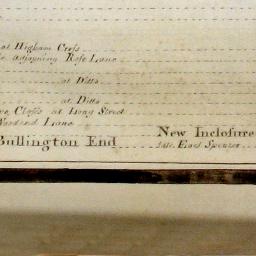 at Higham Cross
adjoyning Rose Lane
at Ditto
at Ditto
Closs at Long Street
Woodend Lane
Bullington End
New Inclosure
late Earl Spencer